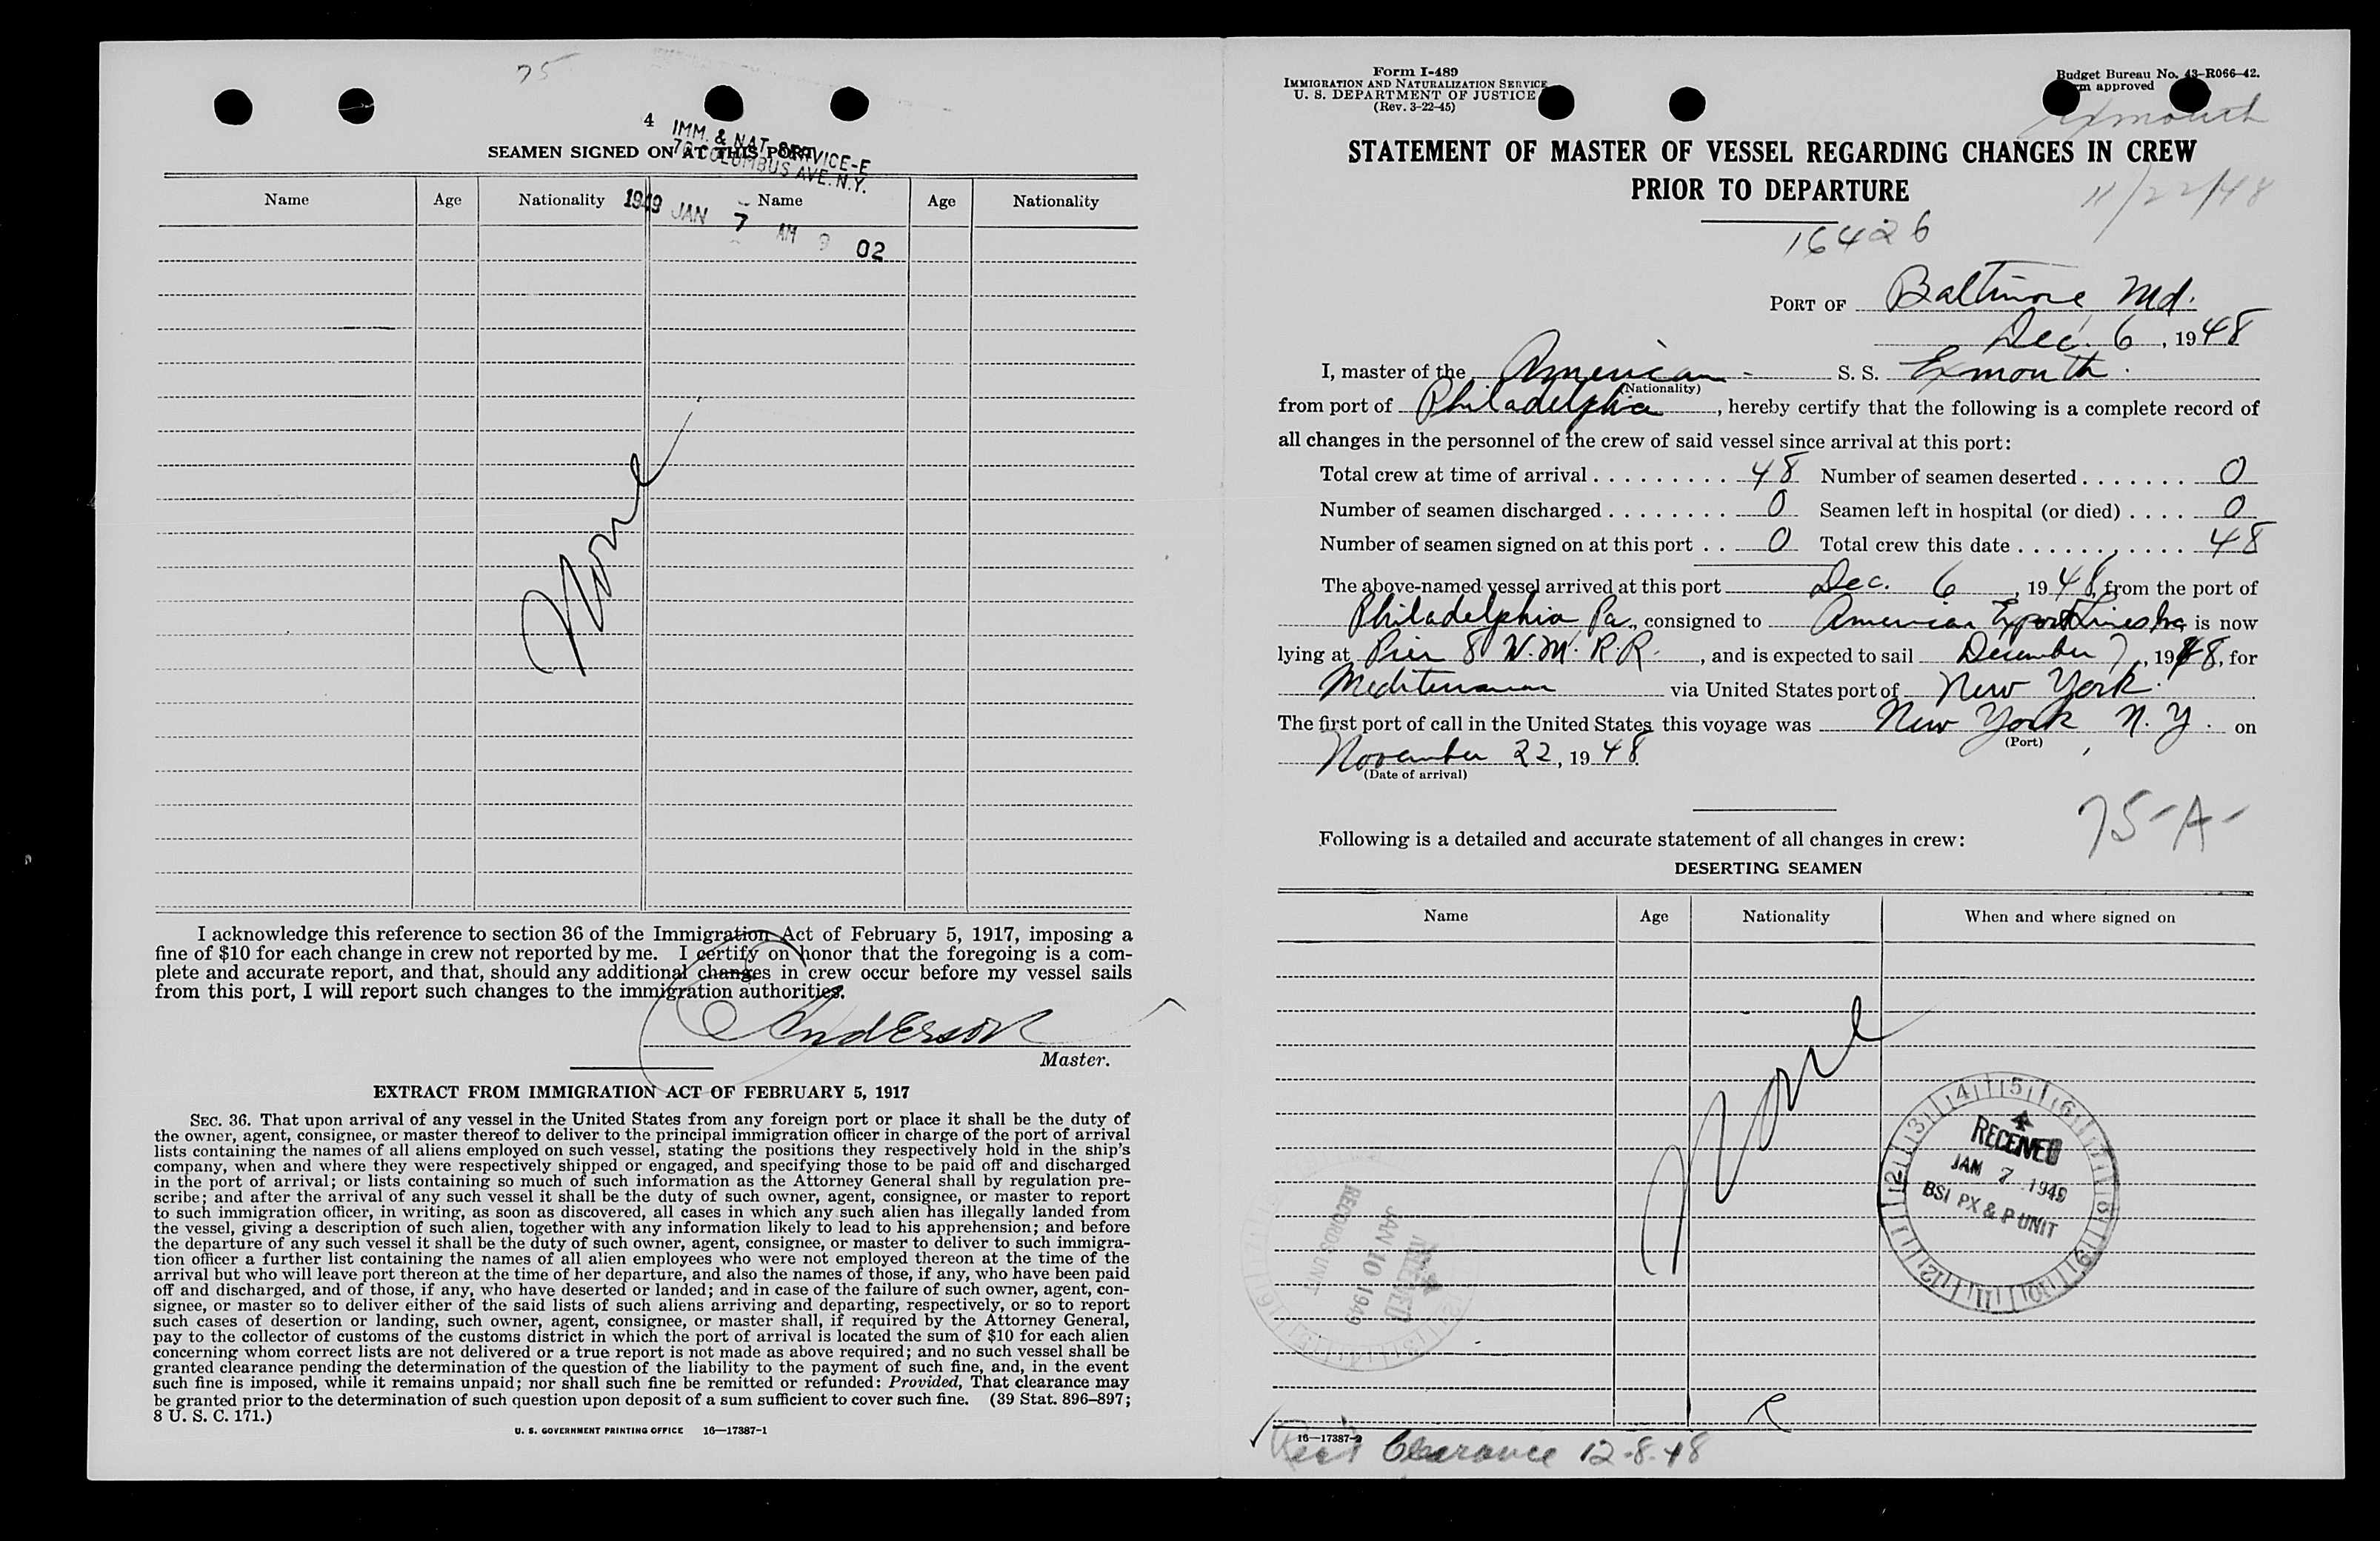 75
4 IMM. & NAT. SERVICE-E
70 COLUMBUS AVE. N.Y.
SEAMEN SIGNED ON AT THIS PORT
Name Age Nationality Name Age Nationality
1949 JAN 7 AM 9 02
None
I acknowledge this reference to section 36 of the Immigration Act of February 5, 1917, imposing a
fine of $10 for each change in crew not reported by me. I certify on honor that the foregoing is a com-
plete and accurate report, and that, should any additional changes in crew occur before my vessel sails
from this port, I will report such changes to the immigration authorities.
Anderson
Master.
EXTRACT FROM IMMIGRATION ACT OF FEBRUARY 5, 1917
SEC. 36. That upon arrival of any vessel in the United States from any foreign port or place it shall be the duty of
the owner, agent, consignee, or master thereof to deliver to the principal immigration officer in charge of the port of arrival
lists containing the names of all aliens employed on such vessel, stating the positions they respectively hold in the ship's
company, when and where they were respectively shipped or engaged, and specifying those to be paid off and discharged
in the port of arrival; or lists containing so much of such information as the Attorney General shall by regulation pre-
scribe; and after the arrival of any such vessel it shall be the duty of such owner, agent, consignee, or master to report
to such immigration officer, in writing, as soon as discovered, all cases in which any such alien has illegally landed from
the vessel, giving a description of such alien, together with any information likely to lead to his apprehension; and before
the departure of any such vessel it shall be the duty of such owner, agent, consignee, or master to deliver to such immigra-
tion officer a further list containing the names of all alien employees who were not employed thereon at the time of the
arrival but who will leave port thereon at the time of her departure, and also the names of those, if any, who have been paid
off and discharged, and of those, if any, who have deserted or landed; and in case of the failure of such owner, agent, con-
signee, or master so to deliver either of the said lists of such aliens arriving and departing, respectively, or so to report
such cases of desertion or landing, such owner, agent, consignee, or master shall, if required by the Attorney General,
pay to the collector of customs of the customs district in which the port of arrival is located the sum of $10 for each alien
concerning whom correct lists are not delivered or a true report is not made as above required; and no such vessel shall be
granted clearance pending the determination of the question of the liability to the payment of such fine, and, in the event
such fine is imposed, while it remains unpaid; nor shall such fine be remitted or refunded: Provided, That clearance may
be granted prior to the determination of such question upon deposit of a sum sufficient to cover such fine. (39 Stat. 896–897;
8 U. S. C. 171.)
U. S. GOVERNMENT PRINTING OFFICE 16—17387-1
Form I-489
IMMIGRATION AND NATURALIZATION SERVICE
U. S. DEPARTMENT OF JUSTICE
(Rev. 3-22-45)
Budget Bureau No. 43-R066-42.
approved
Exmouth
STATEMENT OF MASTER OF VESSEL REGARDING CHANGES IN CREW
PRIOR TO DEPARTURE
11/22/48
16426
PORT OF Baltimore Md.
Dec. 6, 1948
I, master of the American S. S. Exmouth
(Nationality)
from port of Philadelphia, hereby certify that the following is a complete record of
all changes in the personnel of the crew of said vessel since arrival at this port:
Total crew at time of arrival 48 Number of seamen deserted 0
Number of seamen discharged 0 Seamen left in hospital (or died) 0
Number of seamen signed on at this port 0 Total crew this date 48
The above-named vessel arrived at this port Dec. 6, 1948, from the port of
Philadelphia Pa., consigned to American Export Lines Inc, is now
lying at Pier 8 W.M. R.R., and is expected to sail December 7, 1948, for
Mediterranean via United States port of New York.
The first port of call in the United States this voyage was New York N.Y. on
(Port)
November 22, 1948.
(Date of arrival)
75-A-
Following is a detailed and accurate statement of all changes in crew:
DESERTING SEAMEN
Name Age Nationality When and where signed on
None
RECEIVED
JAN 7 1949
BSI PX & P UNIT
RECEIVED
JAN 10 1949
RECORDS UNIT
R
16—17387-2
Clearance 12-8-48